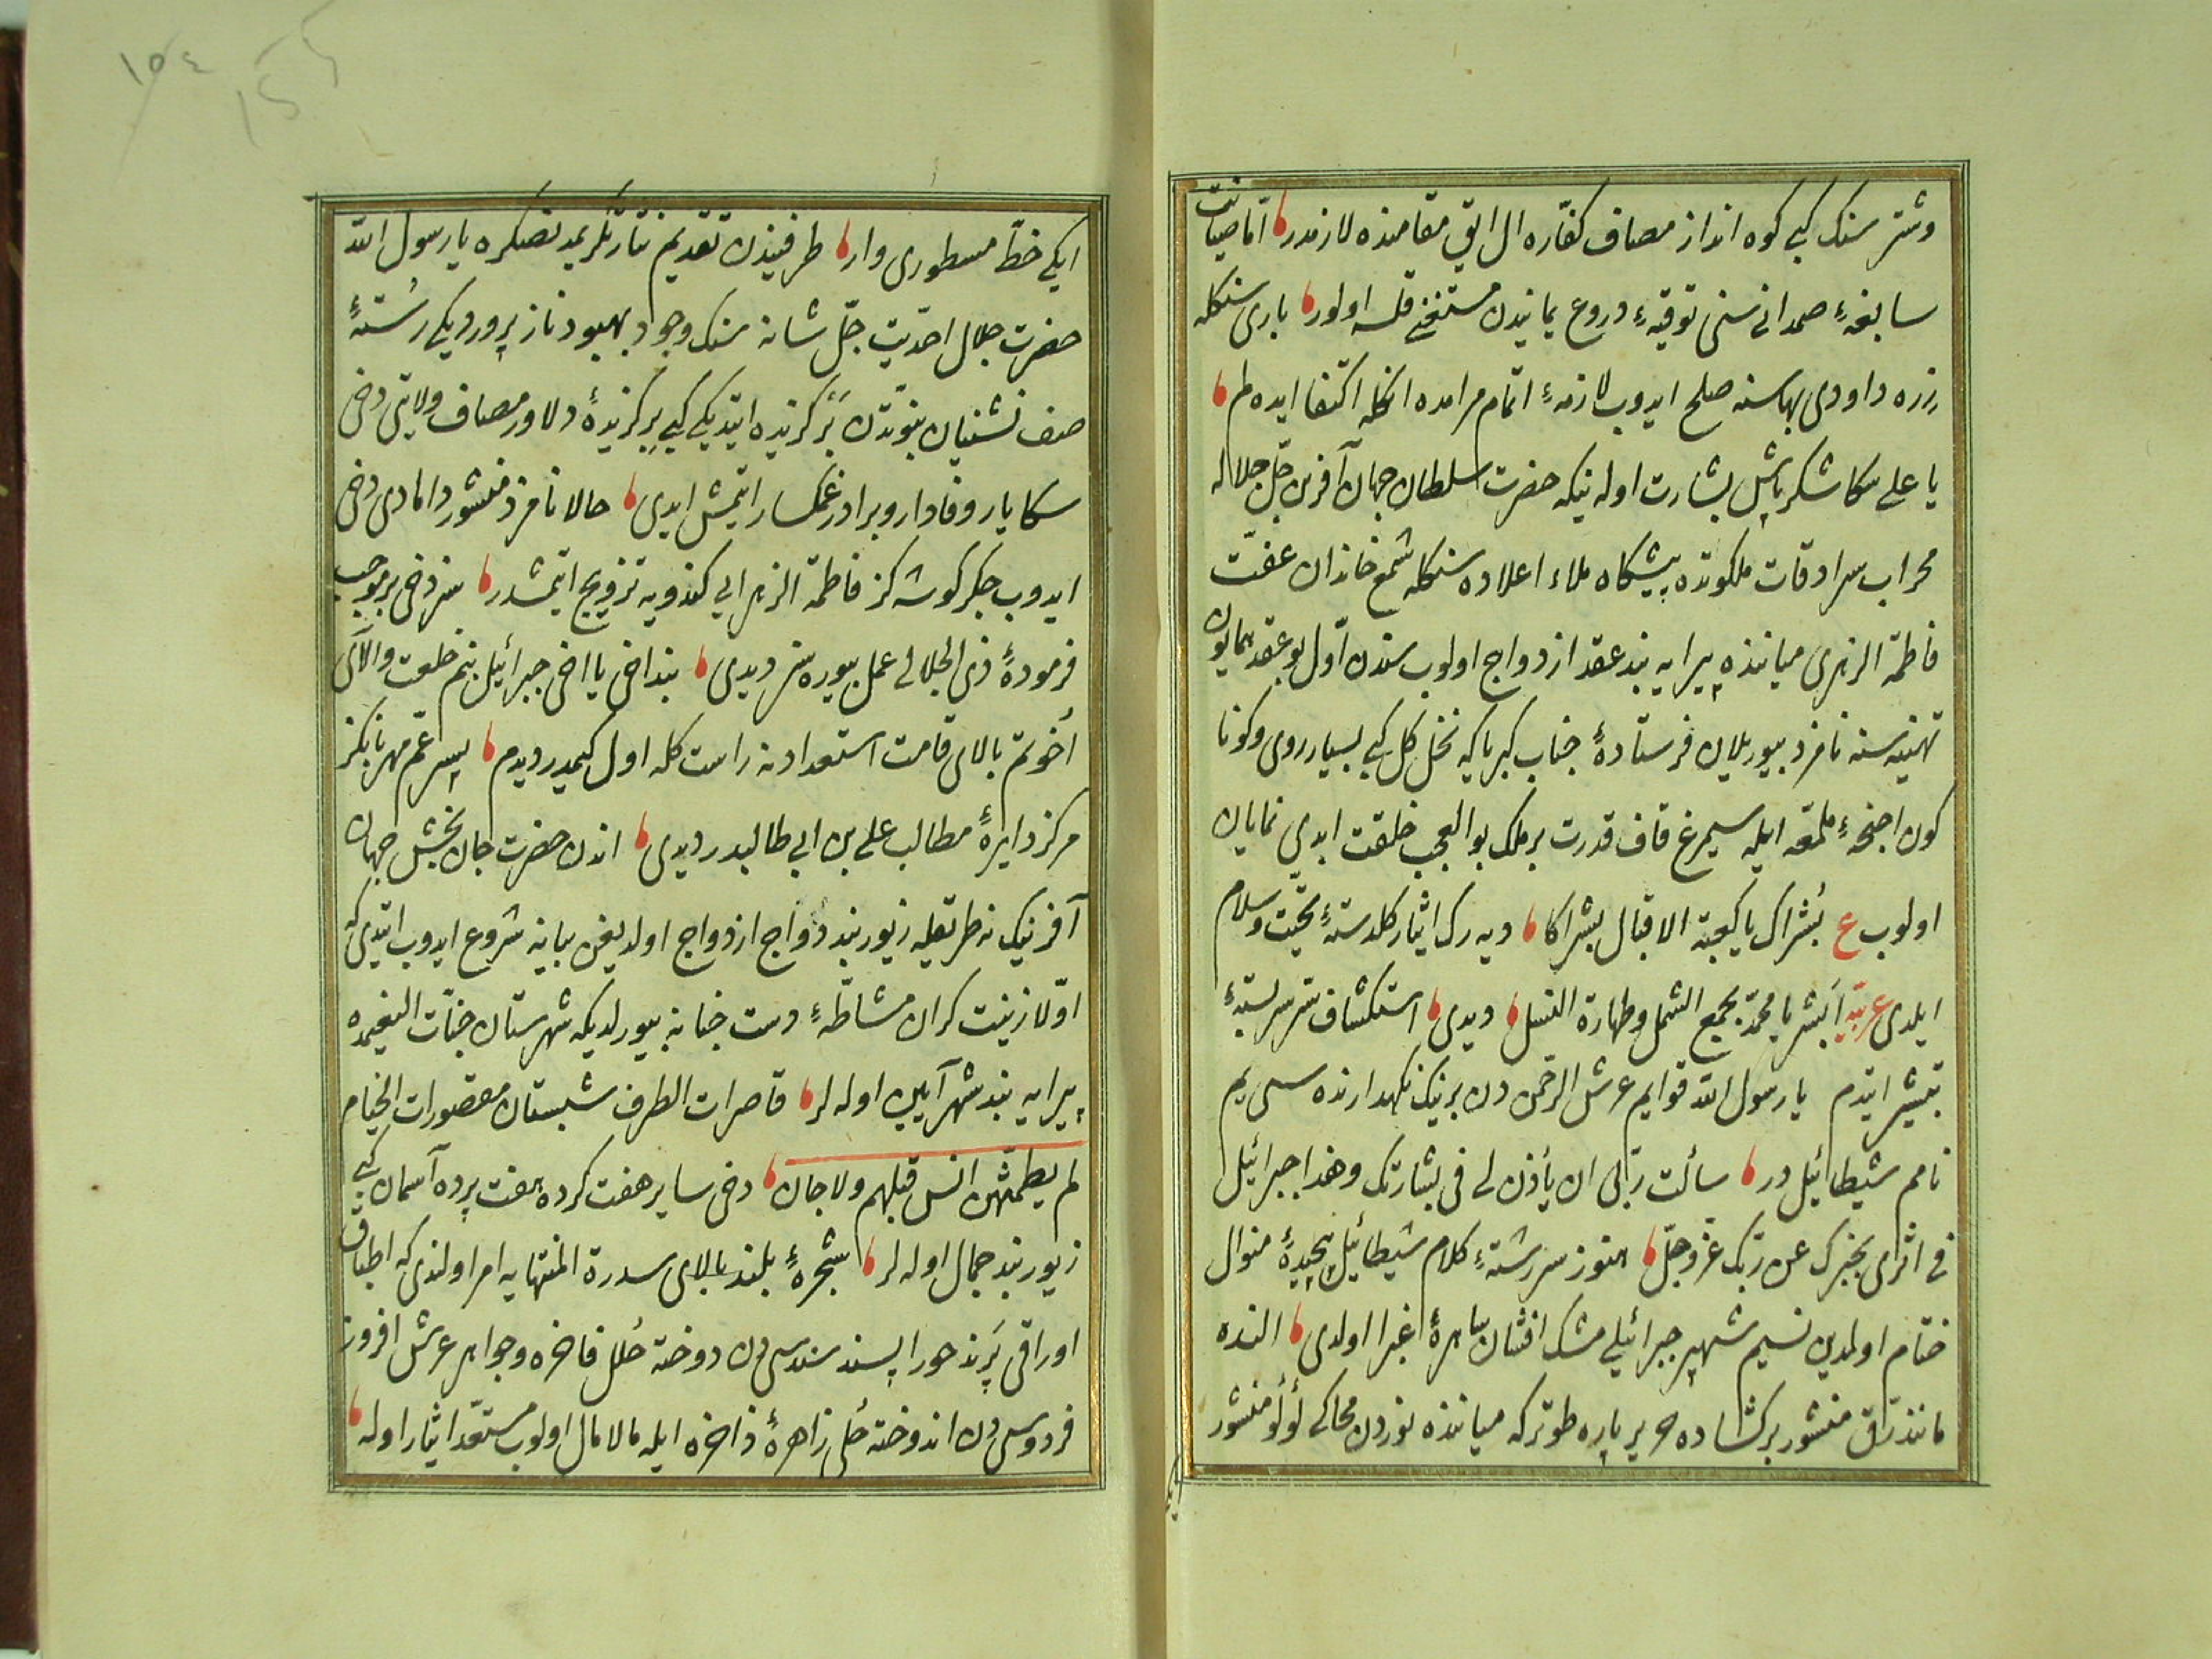 وشتر سنك كبی كوه انداز مصاف كفّاره ال ایق مقامنده لازمدر اما صیانت
سابغهٔ صمدانی سنی توقیهٔ دروع یمانیدن مستغنی قلسه اولور باری سنكله
زره داودی بهاسنه صلح ایدوب لازمهٔ اتمام مرامده انكله اكتفا ایده لم
یا علی سكا شكر پاش بشارت اوله نیكه حضرت سلطان جهان آفرین جلّ جلاله
محراب سرادقات ملكوتده پیشكاه ملاء اعلاده سنكله شمع خاندان عفّت
فاطمة الزهری میاننده پیرایه بند عقد ازدواج اولوب سندن اوّل بو عقد همایون
تهنیه سنه نامزد بیوریلان فرستادهٔ جناب كبریا كه نخل كل كبی بسیار روی وكونا
كون اجنحهٔ ملمّعه ایله سیمرغ قاف قدرت بر ملك بو العجب خلقت ایدی نمایان
اولوب ع بُشراك یا كعبة الاقبال بشراكا دیه رك ایثار كلدستهٔ تحیّت وسلام
ایلدی عربیّه اَبشر یا محمّد بجمع الشمل وطهارة النسل دیدی استكشاف سّر سربستهٔ
تبشیر ایتدم یا رسول الله قوایم عرش الرحمن دن برینك نكهدارنده سی یم
نامم شیطائیل در سألت ربّی ان یأذن لی فی بشارتك وهذا جبرائیل
فی اثری یخبرك عن ربّك عزّ وجلّ هنوز سررشتهٔ كلام شیطائیل پیچیدهٔ منوال
ختام اولمدین نسیم شهپر جبرائیلی مشك افشان ساهرهٔ غبرا اولدی النده
مانند رّق منشور بر كشاده حریر پاره طوتر كه میاننده نوردن محاكی لؤلؤ منشور
ایكی خطّ مسطوری وار طرفیندن تقدیم نثار تكریمدنصكره یا رسول الله
حضرت جلال احدّیت جلّ شانه سنك وجود بهبود ناز پروردیكی رُستهٔ
صف نشینان نبوّتدن بَر كزیده ایتدیكی كبی بِر كزیدهٔ دلاور مصاف ولایتی دخی
سكا یار وفادار وبرادر غمكسار ایتمش ایدی حالا نامزد منشور دامادی دخی
ایدوب جكر كوشه كز فاطمة الزهرایی كندویه تزویج ایتمشدر سز دخی برموجب
فرمودهٔ ذی الجلالی عمل بیوره سز دیدی بنداخی یا اخی جبرائیل بنم خلعت والآی
اُخوتم بالای قامت استعدادنه راست كله اول كیمدر دیدم پسر عمّ مهربانكز
مركز دایرهٔ مطالب علی بن ابی طالبدر دیدی اندن حضرت جان بخش جهان
آفرنیك نه طریقله زیوربند دُواج ازدواج اولدیغن بیانه شروع ایدوب ایتدی كه
اوّلا زینت كران مشاطّهٔ دست جنانه بیورلدیكه شهرستان جنّات النعیمده
پیرایه بند شهر آیین اوله لر قاصرات الطرف شبستان مقصورات الخیام
لم یطمثهن انس قبلهم ولا جان دخی سایر هفت كرده هفت پرده آسمان كبی
زیوربند جمال اوله لر شجرهٔ بلند بالای سدرة المنتهایه امر اولندی كه اطباق
اوراقی پَرند حورا پسند سندسی دن دوخته حُلل فاخره وجواهر عرش افروز
فردوسی دن اندوخته حُلی زاهرهٔ ذاخره ایله مالامال اولوب مستعدّ ایثار اوله
١٥٤